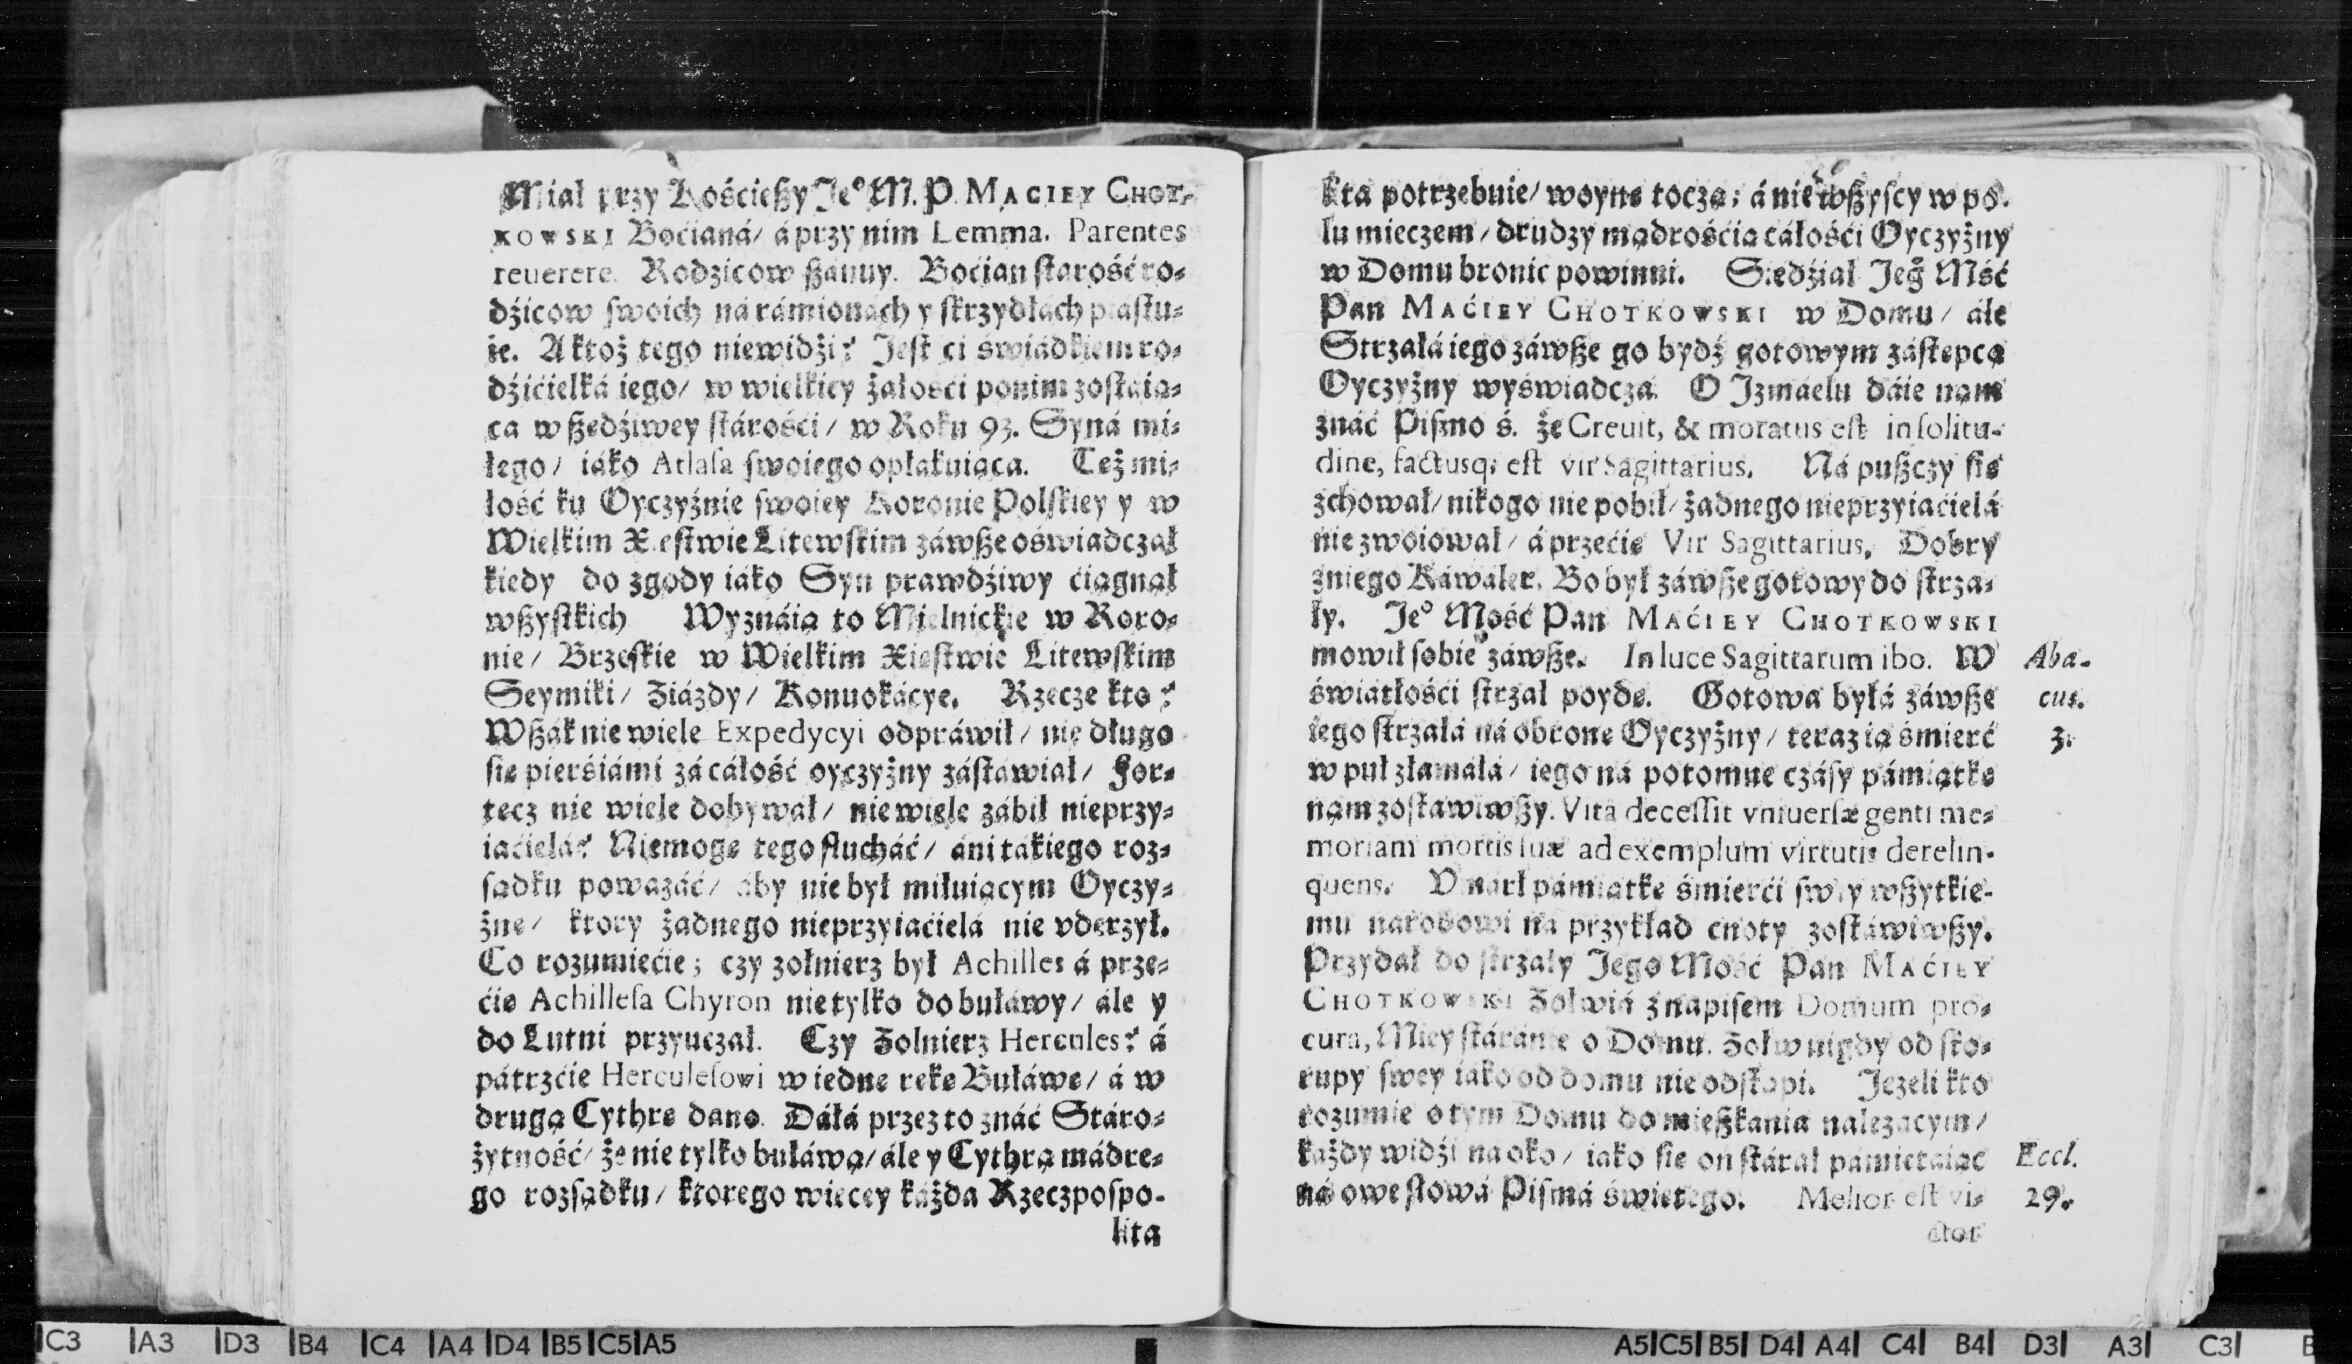 Miał przy Kośćießzy Je° M. P. MACIEY CHOT-
KOWSKI Boćianá/ á przy nim Lemma. Parentes
reuerere. Rodzicow ßánuy. Boćian ſtarość ro-
dźicow ſwoich ná rámionách y ſkrzydłách piaſtu-
ie. A ktoż tego niewidźi? Jeſt ći świádkiem ro-
dźićielká iego/ w wielkiey żałośći ponim zoſtáią-
ca w ßedźiwey ſtárośći/ w Roku 93. Syná mi-
łego/ iáko Atlaſa ſwoiego opłakuiąca. Też mi-
łość ku Oyczyźnie ſwoiey Koronie Polſkiey y w
Wielkim X.eſtwie Litewſkim záwße oświadczał
kiedy do zgody iáko Syn prawdźiwy ćiągnął
wßyſtkich Wyznáią to Mielnickie w Koro-
nie/ Brzeſkie w Wielkim Xięſtwie Litewſkim
Seymiki/ Ziázdy/ Konuokácye. Rzecze kto?
Wßák nie wiele Expedycyi odpráwił/ nie długo
ſię pierśiámi zá cáłość oyczyżny záſtawiał/ For-
tecz nie wiele dobywał/ nie wiele zábił nieprzy-
iaćielá? Niemogę tego ſłucháć/ áni tákiego roz-
ſądku poważáć/ aby nie był miłuiącym Oyczy-
żnę/ ktory żadnego nieprzyiaćielá nie vderzył.
Co rozumiećie; czy zołnierz był Achilles á prze-
ćię Achilleſa Chyron nie tylko do buławy/ ále y
do Lutni przyuczał. Czy Zolnierz Hercules? á
pátrzćie Herculeſowi w iednę rękę Buláwę/ á w
drugą Cythrę dano. Dáłá przez to znáć Stáro-
żytność/ że nie tylko buláwą/ ále y Cythrą mádre-
go rozſądku/ ktorego więcey káżda Rzeczpoſpo-
lita
lita potrzebuie/ woynę toczą; á nie wßyſcy w po-
lu mieczem/ drudzy mądrośćią cáłośći Oyczyżny
w Domu bronic powinni. Siedźiał Jeg° Mść
Pan MAĆIEY CHOTKOWSKI w Domu/ ale
Strzałá iego záwße go bydź gotowym záſtępcą
Oyczyżny wyświadcza. O Izmáelu dáie nam
znáć Piſmo ś. że Creuit, & moratus eſt in ſolitu-
dine, factusq; eſt vir Sagittarius. Ná pußczy ſię
zchował/ nikogo nie pobił/ żadnego nieprzyiaćielá
nie zwoiował/ á przećię Vir Sagittarius. Dobry
zniego Káwaler. Bo był záwße gotowy do ſtrza-
ły. Je° Mość Pan MAĆIEY CHOTKOWSKI
mowił ſobie záwße. In luce Sagittarum ibo. W
świátłośći ſtrzał poydę. Gotowa byłá záwße
iego ſtrzałá ná obronę Oyczyżny/ teraz ią śmierć
w puł złamáłá/ iego ná potomne czáſy pámiątkę
nąm zoſtáwiwßy. Vita deceſſit vniuerſæ genti me-
moriam mortis ſuæ ad exemplum virtutis derelin-
quens. Vmárł pámiątkę śmierći ſwey wßytkie-
mu narodowi ná przykład cnoty zoſtáwiwßy.
Przydał do ſtrzały Jego Mość Pan MAĆIEY
CHOTKOWSKI Zołwiá z napiſem Domum pro-
cura, Miey ſtáránie o Domu. Zołw nigdy od ſko-
rupy ſwey iáko od domu nie odſtąpi. Jeżeli kto
rozumie o tym Domu do mießkania należącym/
każdy widźi na oko/ iako ſię on ſtárał pámiętaiąc
ná owe ſłowá Piſmá świętego. Melior eſt vi-
ctor
Aba-
cus.
3.
Eccl.
29.